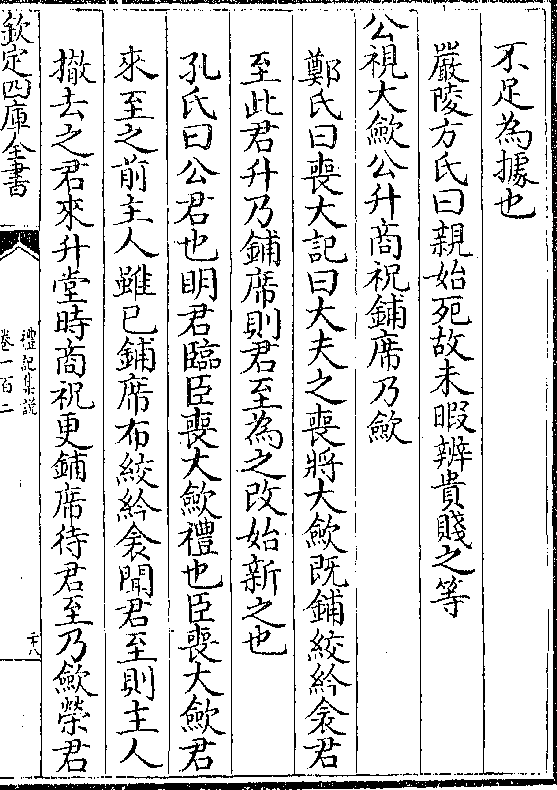 不足為據也
嚴陵方氏曰親始死故未暇辨貴賤之等
公視大斂公升商祝鋪席乃斂
鄭氏曰喪大記曰大夫之喪將大斂既鋪絞紟衾君
至此君升乃鋪席則君至為之改始新之也
孔氏曰公君也明君臨臣喪大斂禮也臣喪大斂君
來至之前主人雖已鋪席布絞紟衾聞君至則主人
撤去之君來升堂時商祝更鋪席待君至乃斂榮君
欽定四庫全書
禮記集說
卷一百二
三十八